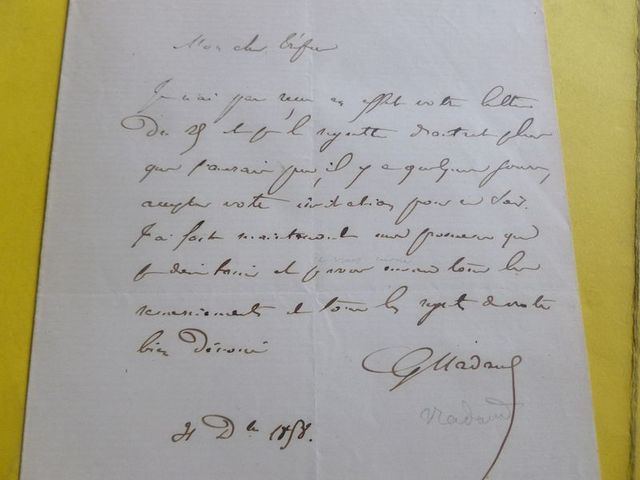 Mon cher
Je n'ai pas reçu en effet votre lettre
du 25 et je le regrette d'autant plus
que j'aurais pu, il y a quelques jours,
accepter votre invitation pour ce soir.
J'ai fait maintenant une promesse que
je dois tenir et je vous envoie tous les
remerciements et tous les regrets de votre
bien dévoué
G Nadaud
Nadaud
31 Dbre 1858.